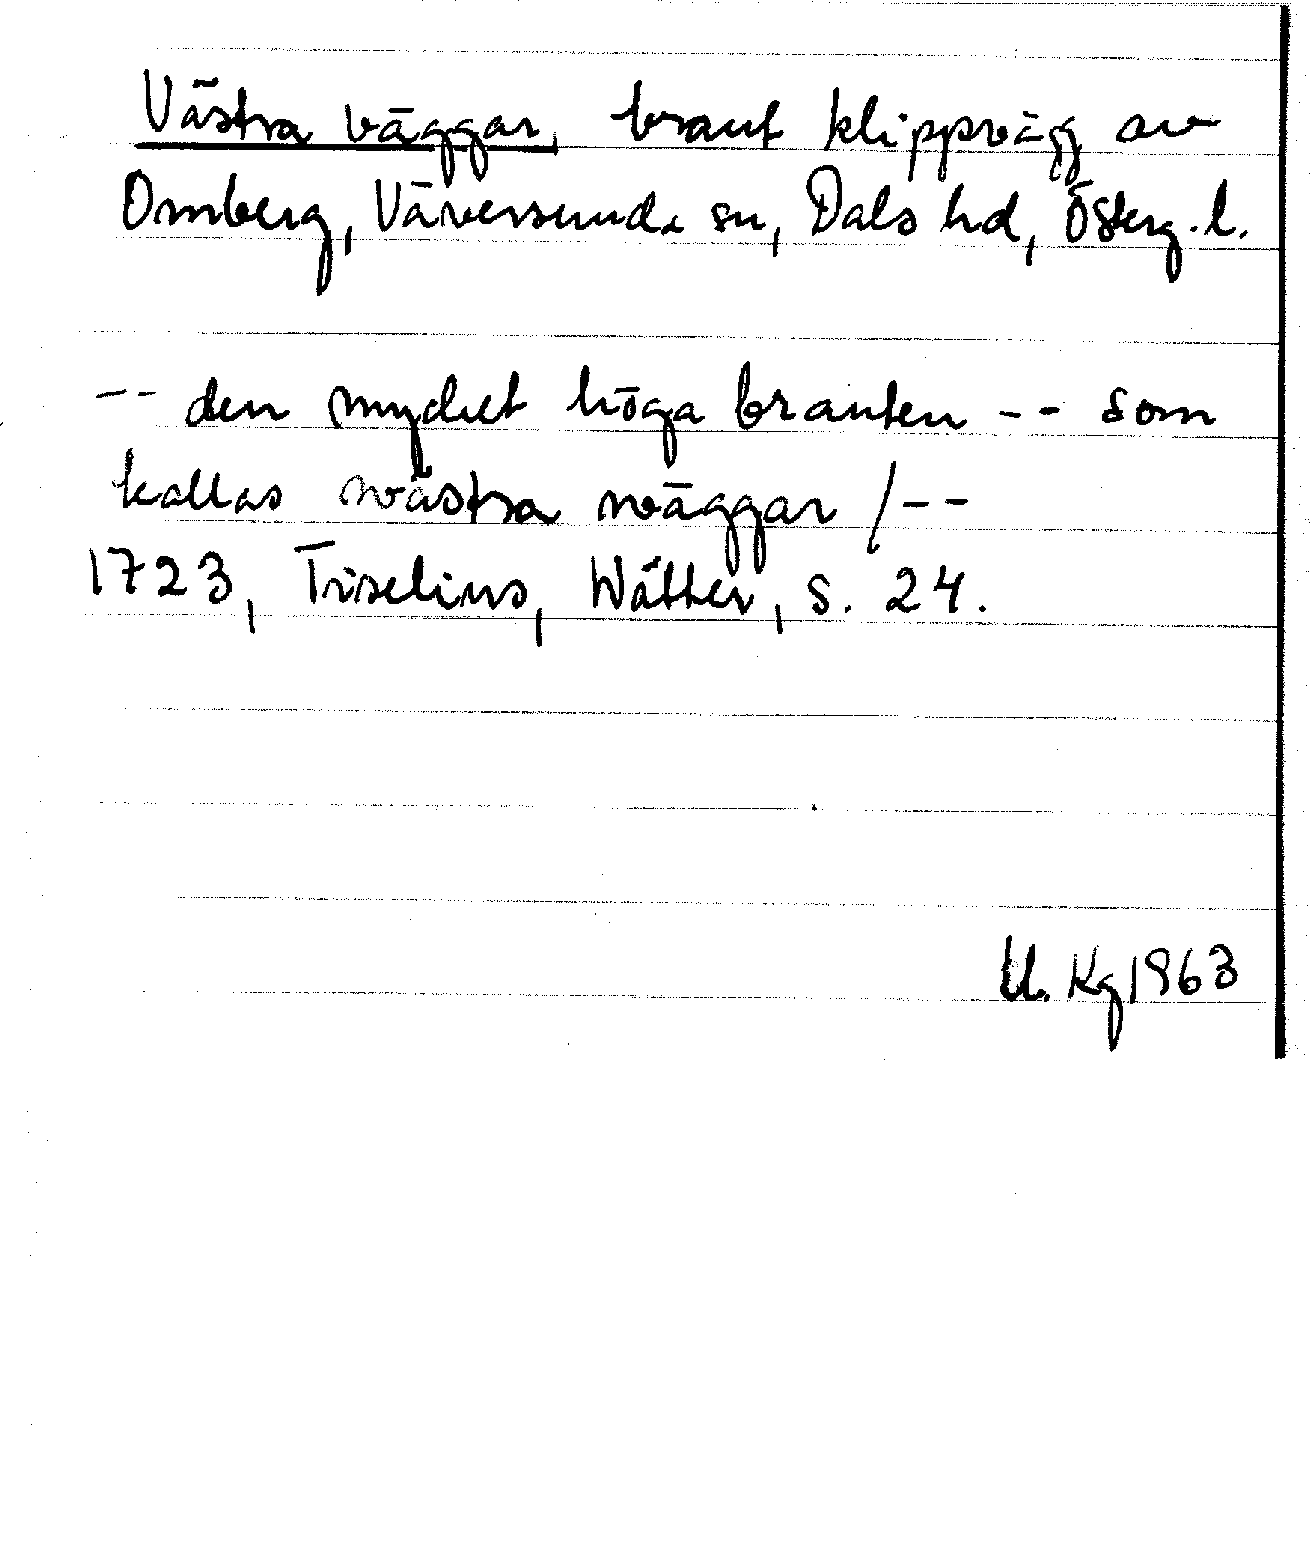 Västra väggar, brant klippvägg av
Omberg, Väversunda sn, Dals hd, Österg.l.
-- den mycket höga branten -- som
kallas wästra wäggar /--
1723, Tiselius, Wätter, s. 24.
U. Kg 1963